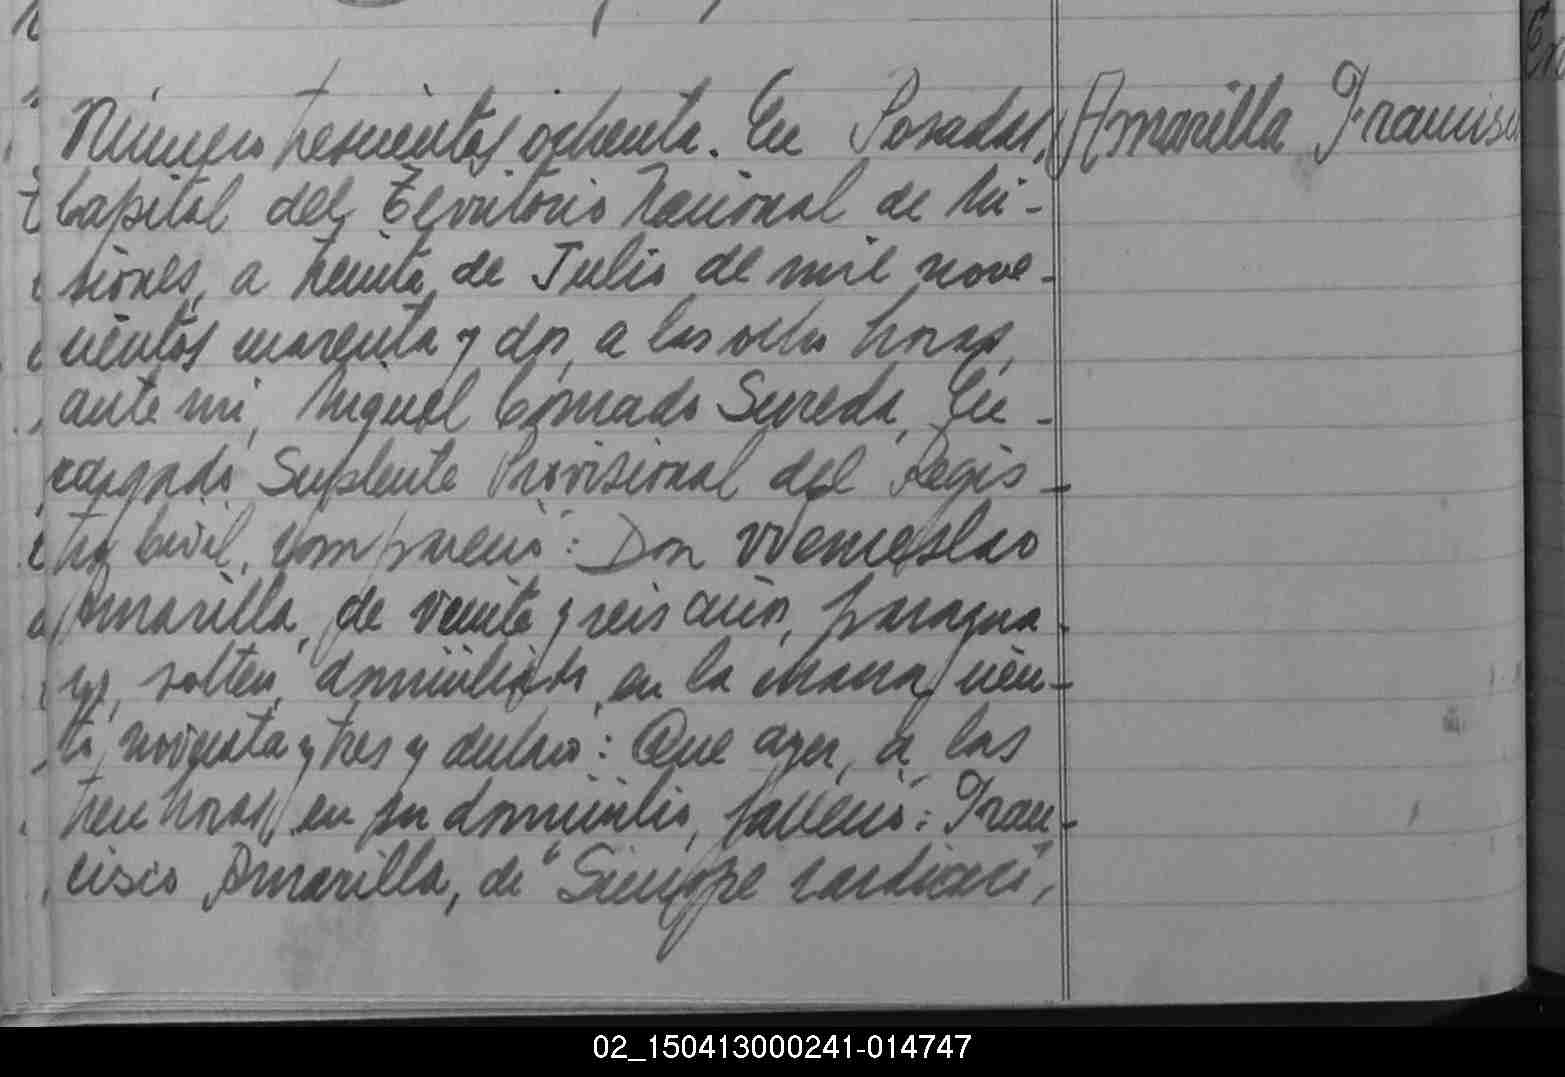 Número trescientos ochenta. En Posadas,
Amarilla Francisco
Capital del Territorio Nacional de Mi-
siones, a treinta de Julio de mil nove-
cientos cuarenta y dos, a las ocho horas,
ante mi, Miguel Conrado Sureda, En-
cargado Suplente Provisional del Regis-
tro Civil, compareció: Don Wenceslao
Amarilla, de veinte y seis años, paragua
yo, soltero, domiciliado en la chacra cien-
to noventa y tres y declaró: Que ayer, a las
trece horas, en su domicilio, falleció: Fran-
cisco Amarilla, de "Sincope cardiaco",
02_150413000241-014747